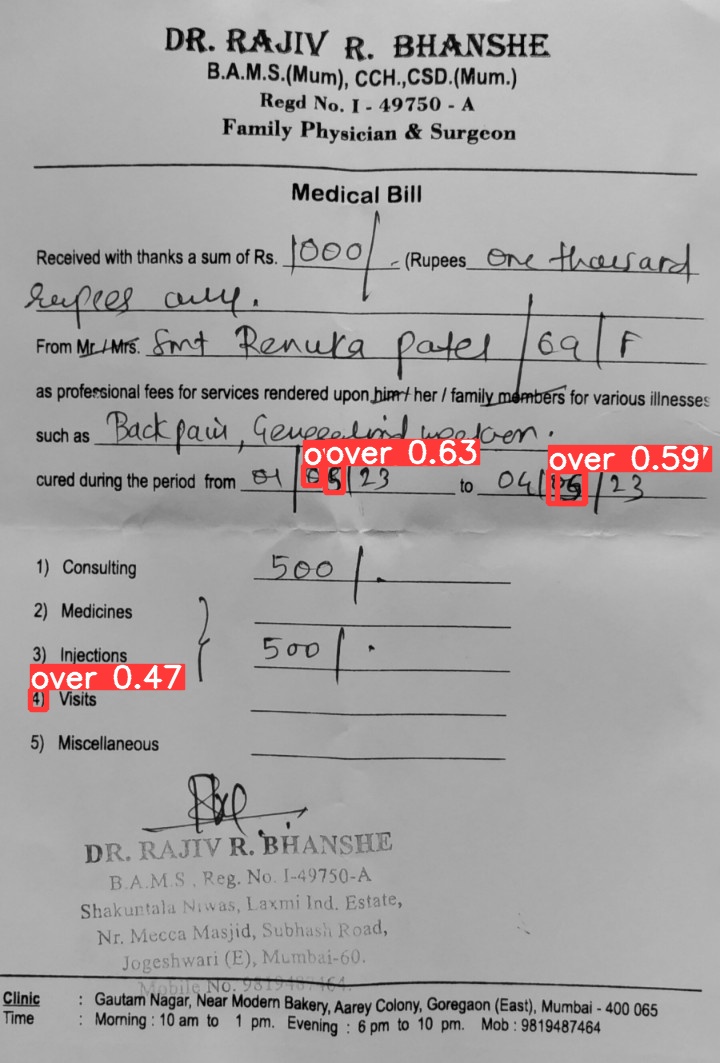 DR. RAJIV R. BHANSHE
B.A.M.S.(Mum), CCH.,CSD.(Mum.)
Regd No. I - 49750 - A
Family Physician & Surgeon
Medical Bill
Received with thanks a sum of Rs. 1000/- (Rupees One thousand
rupees only.
From Mr./Mrs. Smt Renuka Patel / 69 / F
as professional fees for services rendered upon him / her / family members for various illnesses
such as Back pain,
over 0.63 over 0.59
cured during the period from 01/05/23 to 04/05/23
1) Consulting 500/.
2) Medicines
3) Injections 500/.
over 0.47
4) Visits
5) Miscellaneous
DR. RAJIV R. BHANSHE
B.A.M.S , Reg. No. I-49750-A
Shakuntala Niwas, Laxmi Ind. Estate,
Nr. Mecca Masjid, Subhash Road,
Jogeshwari (E), Mumbai-60.
Mobile No. 9819487464.
Clinic : Gautam Nagar, Near Modern Bakery, Aarey Colony, Goregaon (East), Mumbai - 400 065
Time : Morning : 10 am to 1 pm. Evening : 6 pm to 10 pm. Mob : 9819487464